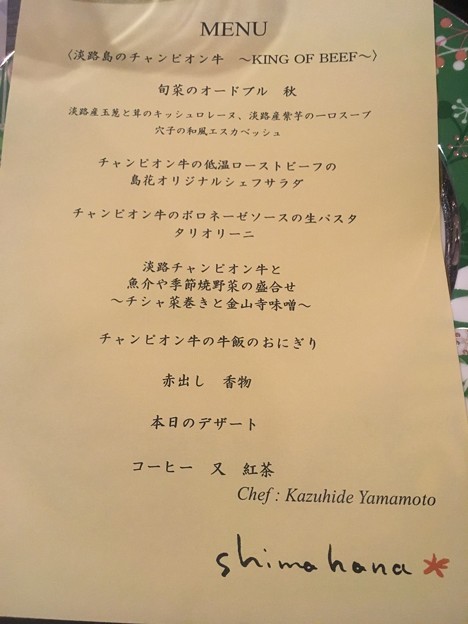 MENU
〈淡路島のチャンピオン牛　～KING OF BEEF～〉
旬菜のオードブル　秋
淡路産玉葱と茸のキッシュロレーヌ、淡路産紫芋の一口スープ
穴子の和風エスカベッシュ
チャンピオン牛の低温ローストビーフの
島花オリジナルシェフサラダ
チャンピオン牛のボロネーゼソースの生パスタ
タリオリーニ
淡路チャンピオン牛と
魚介や季節焼野菜の盛合せ
～チシャ菜巻きと金山寺味噌～
チャンピオン牛の牛飯のおにぎり
赤出し　香物
本日のデザート
コーヒー　又　紅茶
Chef : Kazuhide Yamamoto
shimahana